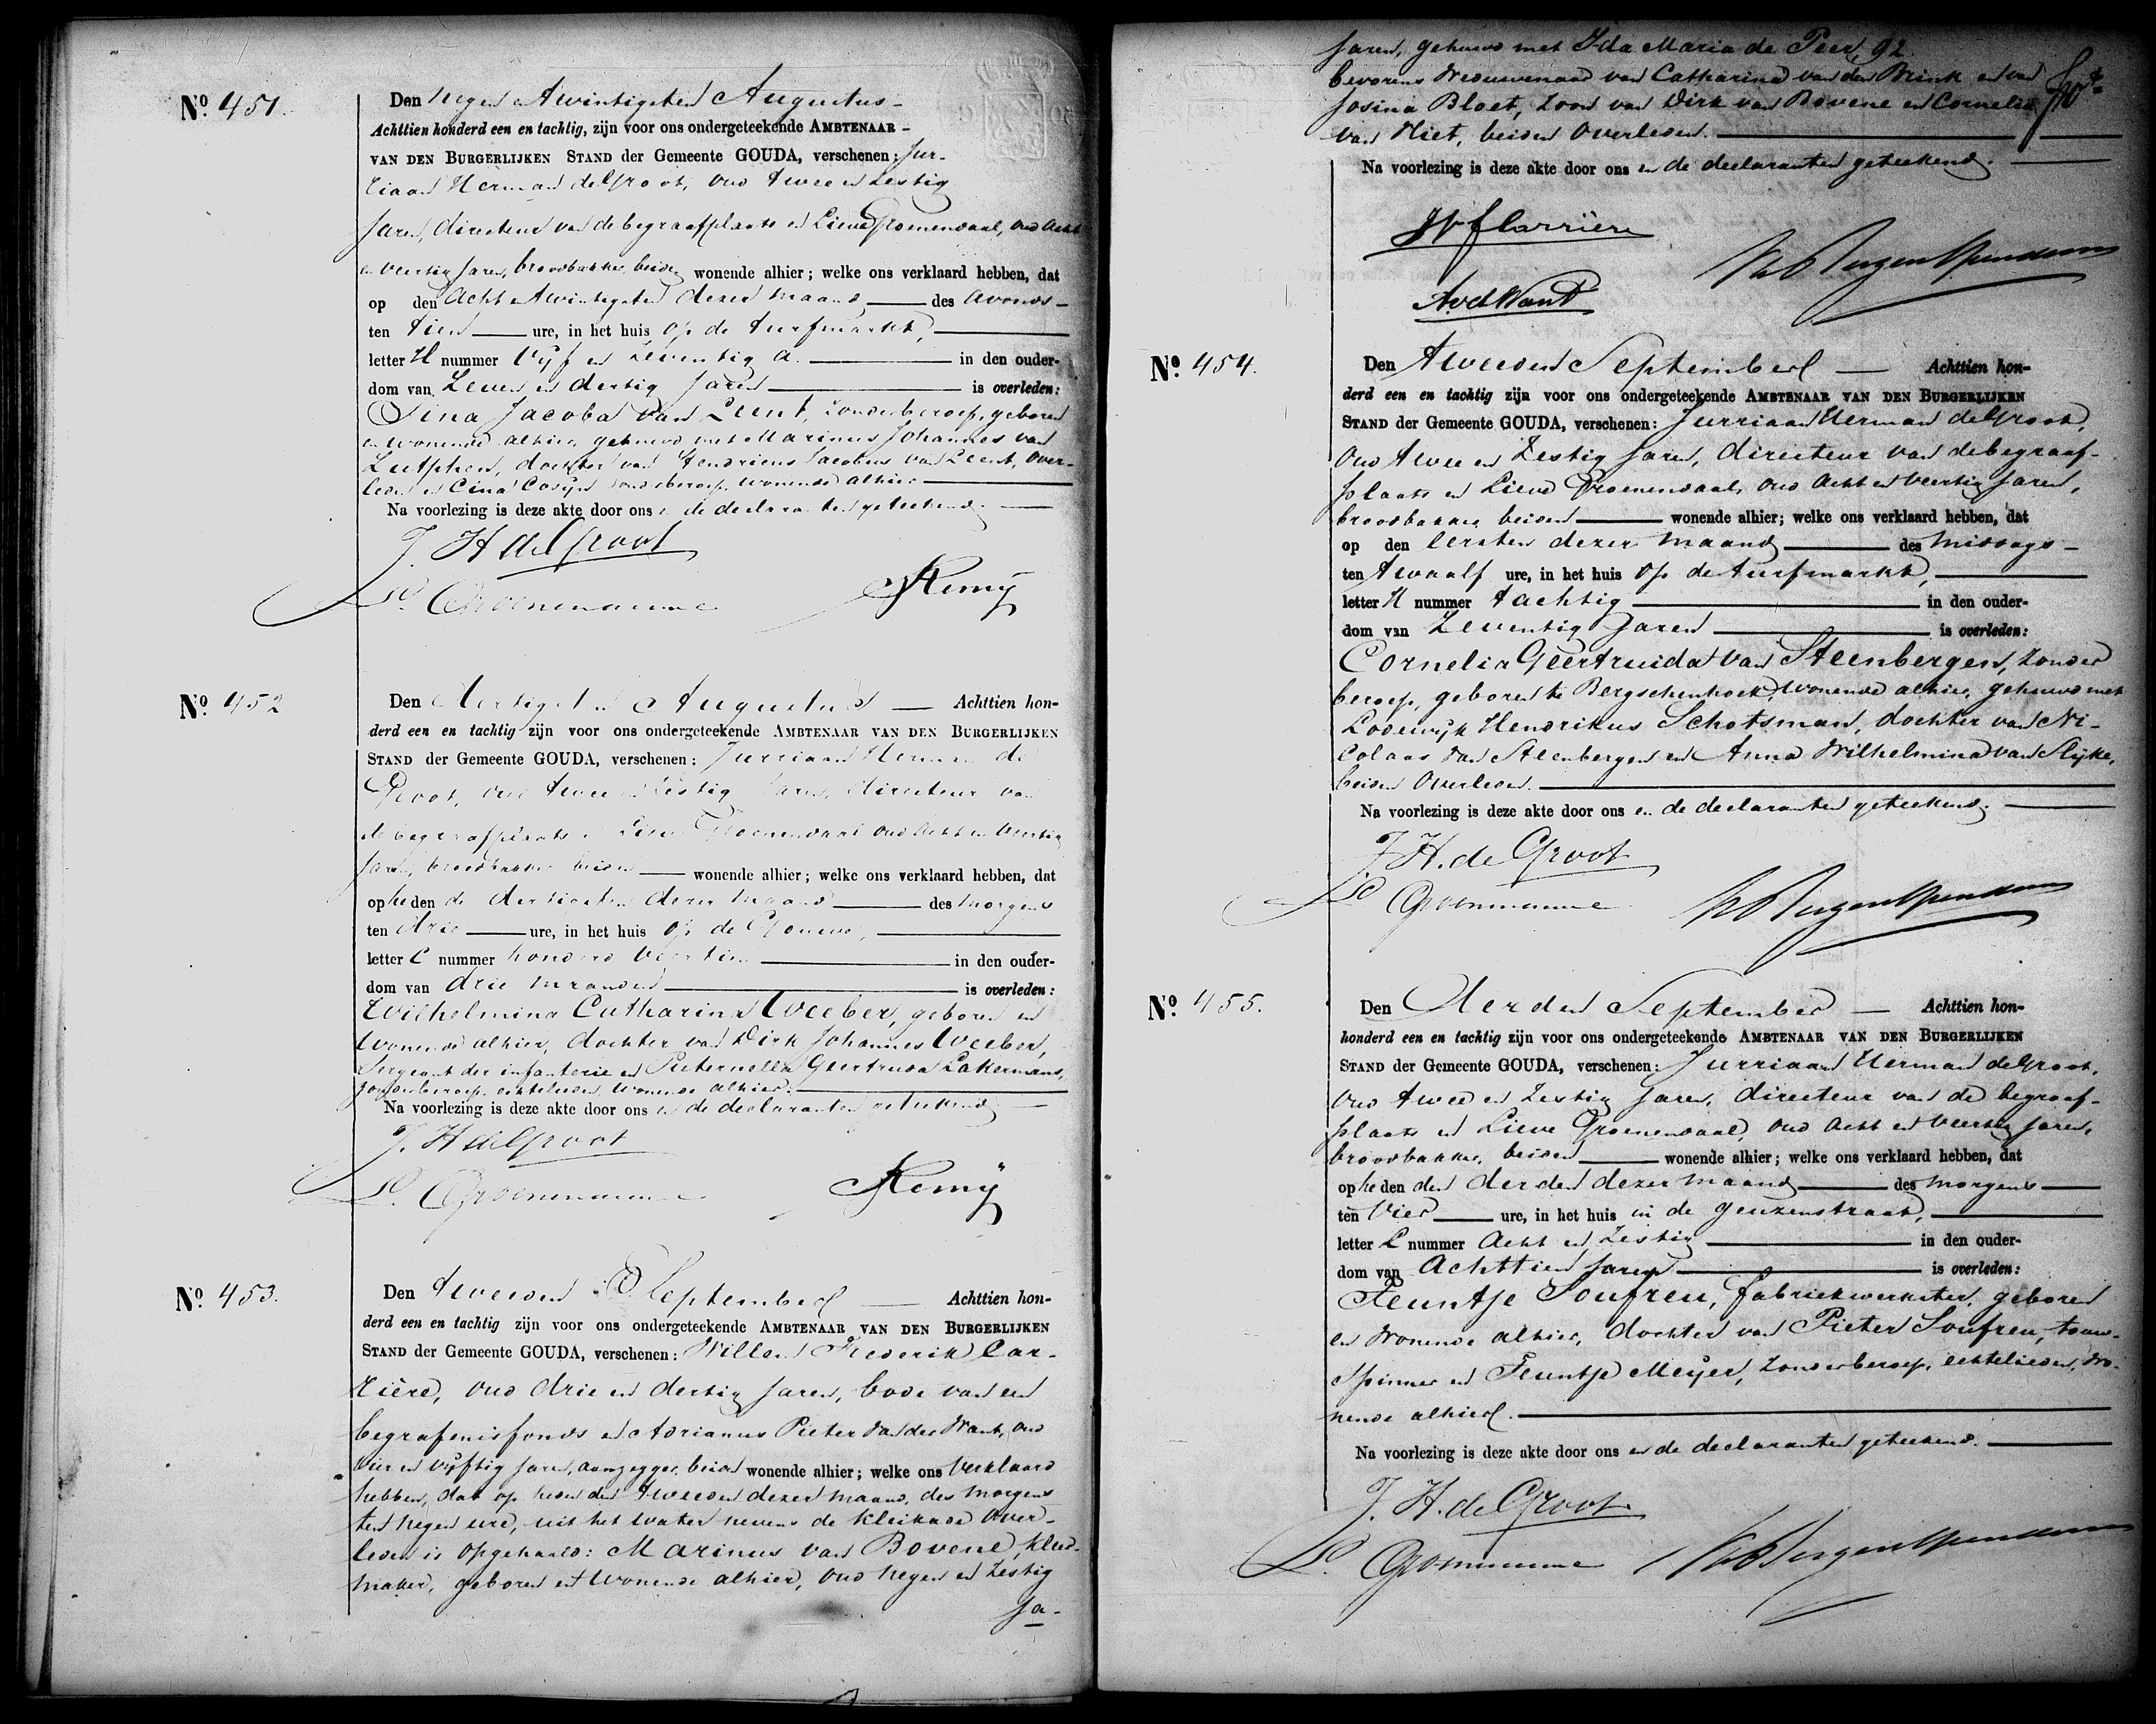 Nº. 451.
Den negen en twintigsten Augustus –
Achttien honderd een en tachtig, zijn voor ons ondergeteekende AMBTENAAR –
VAN DEN BURGERLIJKEN STAND der Gemeente GOUDA, verschenen: Jur-
riaan Herman de Groot, oud twee en zestig
jaren, directeur van de begraafplaats en Lieve Groenendaal, oud acht
en veertig jaren, broodbakker, beiden wonende alhier; welke ons verklaard hebben, dat
op den acht en twintigsten dezer maand des avonds –
ten tien ure, in het huis op de turfmarkt,
letter H nummer vijf en zeventig a. in den ouder-
dom van zeven en dertig jaren is overleden:
Sina Jacoba van Leent, zonder beroep, geboren
en wonende alhier, gehuwd met Marinus Johannes van
Zutphen, dochter van Hendricus Jacobus van Leent, over-
leden en Cina Cosijn zonder beroep wonende alhier
Na voorlezing is deze akte door ons en de declaranten geteekend.
J. H. de Groot
L. Groenendaal
Remij
Nº. 452
Den dertigsten Augustus Achttien hon-
derd een en tachtig zijn voor ons ondergeteekende AMBTENAAR VAN DEN BURGERLIJKEN
STAND der Gemeente GOUDA, verschenen: Jurriaan Herman de
Groot, oud twee en zestig jaren, directeur van
de begraafplaats en Lieve Groenendaal oud acht en veertig
jaren, broodbakker beiden wonende alhier; welke ons verklaard hebben, dat
op heden de dertigsten dezer maand des morgens
ten drie ure, in het huis op de Gouwe,
letter C nummer honderd veertien in den ouder-
dom van drie maanden is overleden:
Wilhelmina Catharina Weeber, geboren en
wonende alhier, dochter van Dirk Johannes Weeber,
Sergeant der infanterie en Pieternella Geertruda Lakermans,
zonder beroep echtelieden, wonende alhier.
Na voorlezing is deze akte door ons en de declaranten geteekend
J. H. de Groot
L. Groenendaal
Remij
Nº. 453.
Den tweeden September Achttien hon-
derd een en tachtig zijn voor ons ondergeteekende AMBTENAAR VAN DEN BURGERLIJKEN
STAND der Gemeente GOUDA, verschenen: Willem Frederik Car-
rière, oud drie en dertig jaren, bode van een
begrafenisfonds en Adrianus Pieter van der Want, oud
vier en vijftig jaren, aanzegger, beiden wonende alhier; welke ons verklaard
hebben, dat op heden den tweeden dezer maand, des morgens
ten negen ure, uit het water nevens de Kleikade over-
leden is opgehaald: Marinus van Bovene, kleer-
maker, geboren en wonende alhier, oud negen en zestig
ja-
jaren, gehuwd met Ida Maria de Peer, 92
bevorens Weduwenaar van Catharina van den Brink en van
Josina Bloet, zoon van Dirk van Bovene en Cornelia
van Niet, beiden overleden.
Na voorlezing is deze akte door ons en de declaranten geteekend.
W f Carrière
AvdWant
Nº. 454.
Den tweeden September Achttien hon-
derd een en tachtig zijn voor ons ondergeteekende AMBTENAAR VAN DEN BURGERLIJKEN
STAND der Gemeente GOUDA, verschenen: Jurriaan Herman de Groot,
oud twee en zestig jaren, directeur van de begraaf-
plaats en Lieve Groenendaal, oud acht en veertig jaren,
broodbakker, beiden wonende alhier; welke ons verklaard hebben, dat
op den eersten dezer maand des middags –
ten twaalf ure, in het huis op de turfmarkt,
letter H nummer tachtig in den ouder-
dom van zeventig jaren is overleden:
Cornelia Geertruida van Steenbergen, zonder
beroep, geboren te Bergschenhoek, wonende alhier, gehuwd met
Lodewijk Hendrikus Schotsman, dochter van Ni-
colaas van Steenbergen en Anna Wilhelmina van Slijke,
beiden overleden.
Na voorlezing is deze akte door ons en de declaranten geteekend.
J. H. de Groot
L. Groenendaal
Nº. 455.
Den derden September Achttien hon-
honderd een en tachtig zijn voor ons ondergeteekende AMBTENAAR VAN DEN BURGERLIJKEN
STAND der Gemeente GOUDA, verschenen: Jurriaan Herman de Groot,
oud twee en zestig jaren, directeur van de begraaf-
plaats en Lieve Groenendaal, oud acht en veertig jaren,
broodbakker, beiden wonende alhier; welke ons verklaard hebben, dat
op heden den derden dezer maand des morgens
ten vier ure, in het huis in de geuzenstraat,
letter L nummer acht en zestig in den ouder-
dom van achttien jaren is overleden:
Teuntje Soufreu, fabriekwerkster, geboren
en wonende alhier, dochter van Pieter Soufreu, touw-
spinner en Teuntje Meijer, zonder beroep, echtelieden, wo-
nende alhier.
Na voorlezing is deze akte door ons en de declaranten geteekend.
J. H. de Groot
L. Groenendaal